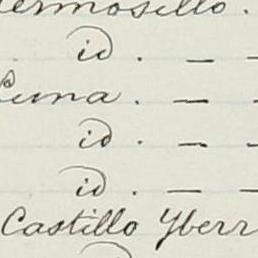 ermosillo.
id. — —
Luna. — —
id. — —
id. — —
Castillo Yberr